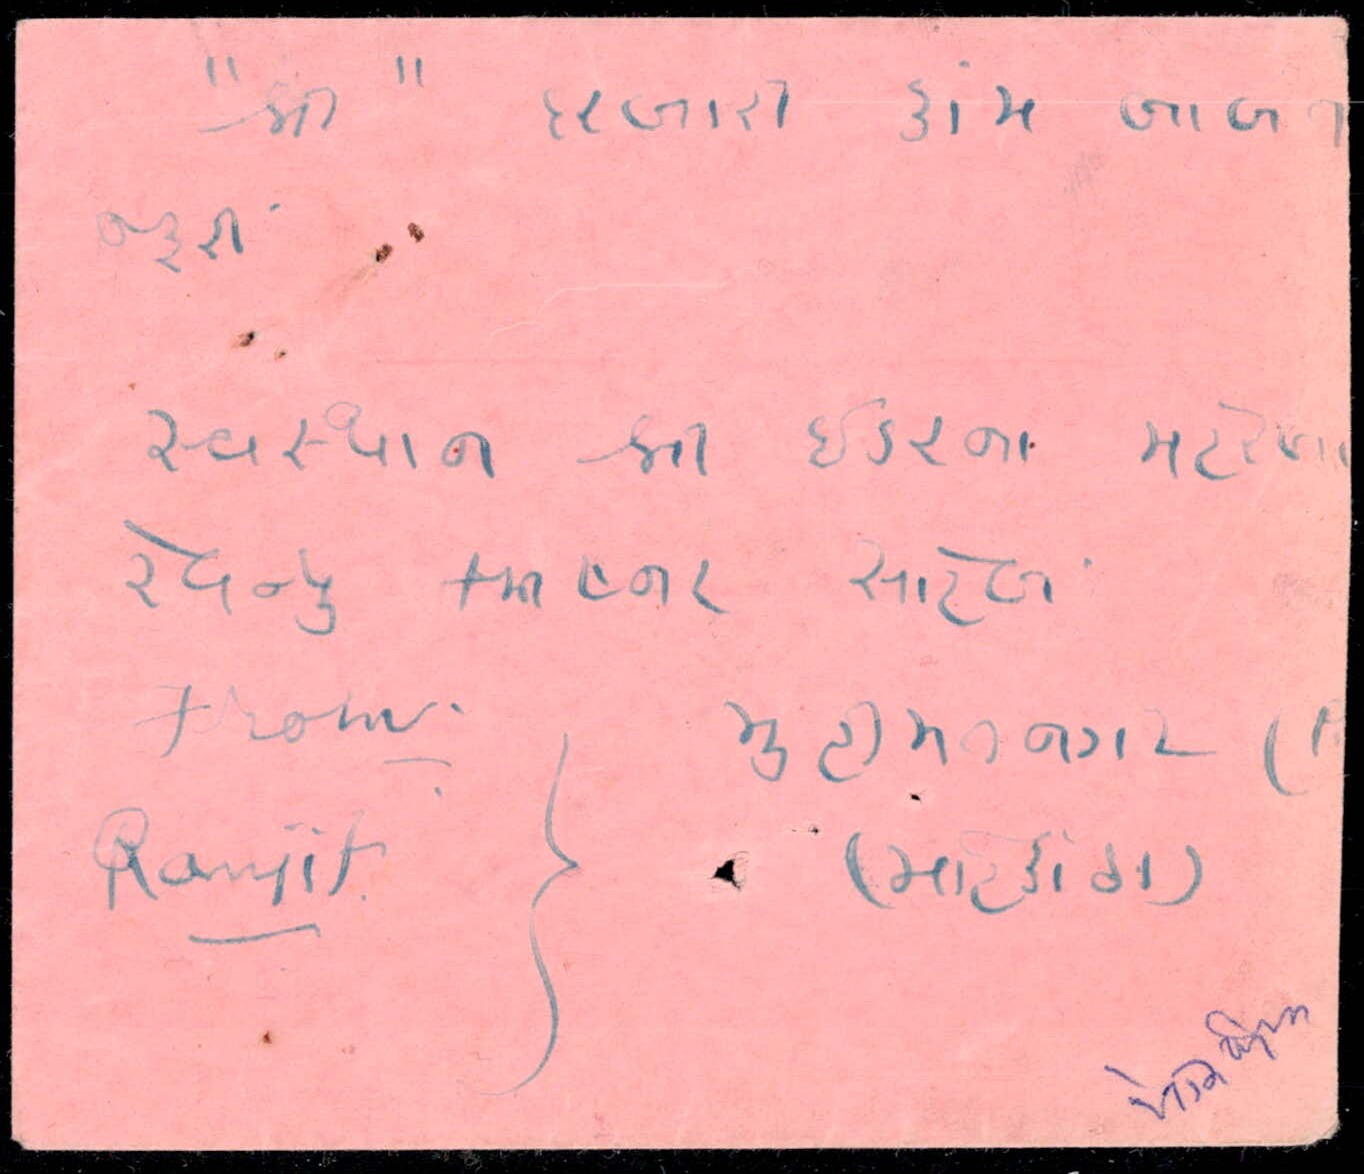 "શ્રી" દરબારી કાંમ બાબત
જરૂરી
સ્વસ્થાન શ્રી ઈડરના મહેરબાન
રેવન્યુ કમીશ્નર સાહેબ
From
મુ હીંમતનગર (
Ranjit.
(મહિકાંઠા)